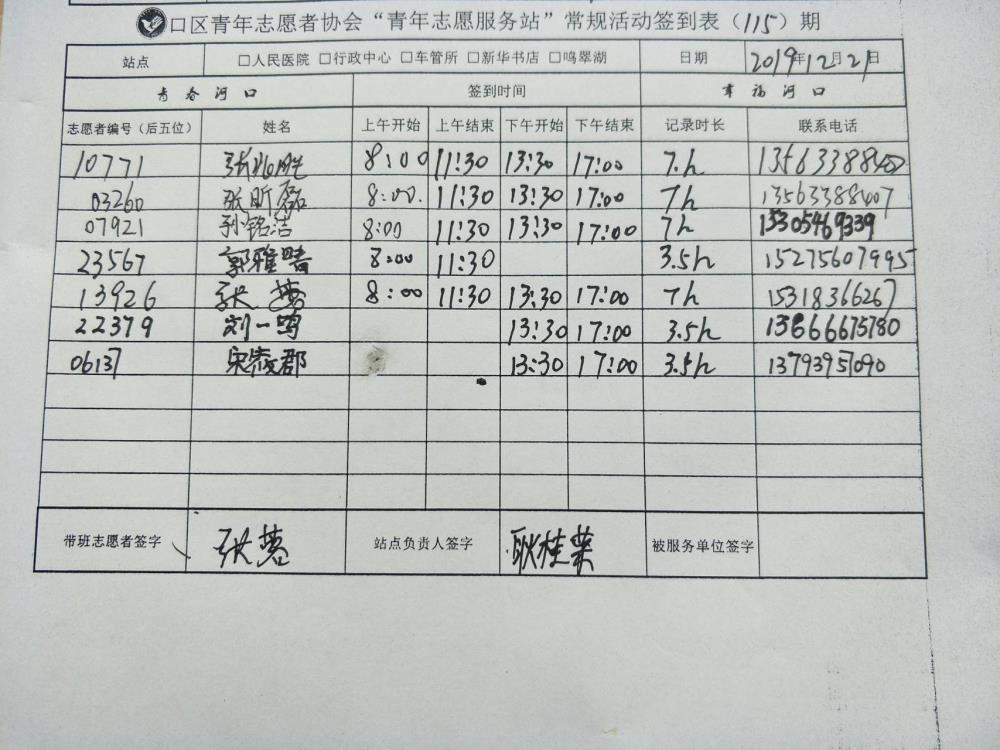 口区青年志愿者协会“青年志愿服务站”常规活动签到表（115）期
站点 □人民医院 □行政中心 □车管所 □新华书店 □鸣翠湖 日期 2019年12月21日
青春河口 签到时间 幸福河口
志愿者编号（后五位） 姓名 上午开始 上午结束 下午开始 下午结束 记录时长 联系电话
10771 张兆胜 8:00 11:30 13:30 17:00 7.h 13563388407
03260 张昕磊 8:00. 11:30 13:30 17:00 7h 13563388407
07921 孙铭浩 8:00 11:30 13:30 17:00 7h 15305469339
23567 郭雅晴 8:00 11:30 3.5h 15275607995
13926 张蓉 8:00 11:30 13:30 17:00 7h 15318366267
22379 刘一鸣 13:30 17:00 3.5h 13666675780
06137 宋 郡 13:30 17:00 3.5h 13793957090
带班志愿者签字 张蓉 站点负责人签字 耿桂荣 被服务单位签字